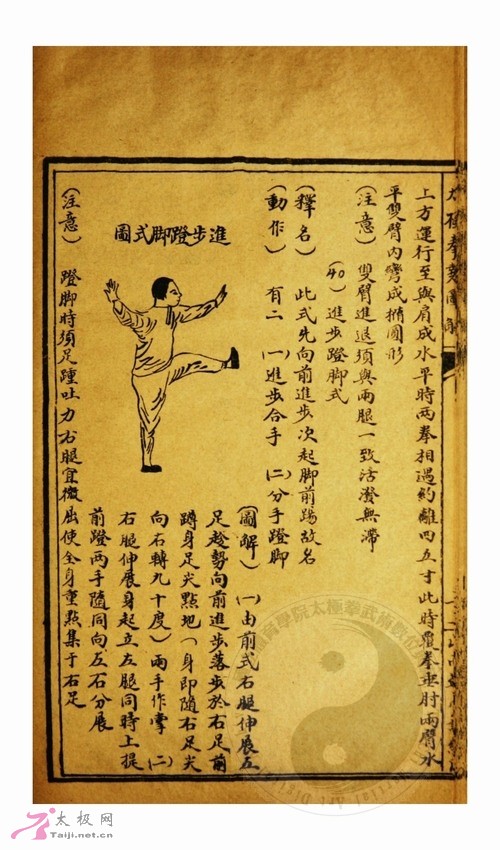 上方運行至與肩成水平時兩拳相遇約離四五寸此時覆拳垂肘兩臂水
平雙臂內彎成橢圓形
(注意) 雙臂進退須與兩腿一致活潑無滯
(40) 進步蹬脚式
(釋名) 此式先向前進步次起脚前踢故名
(動作) 有二 (一)進步合手 (二)分手蹬脚
進步蹬脚式圖
(圖解) (一)由前式右腿伸展左
足趁勢向前進步落步於右足前
蹲身足尖點地(身即隨右足尖
向右轉九十度)兩手作掌 (二)
右腿伸展身起立左腿同時上提
前蹬兩手隨同向左右分展
(注意) 蹬脚時須足踵吐力右腿宜微屈使全身重點集于右足
太极网
Taiji.net.cn